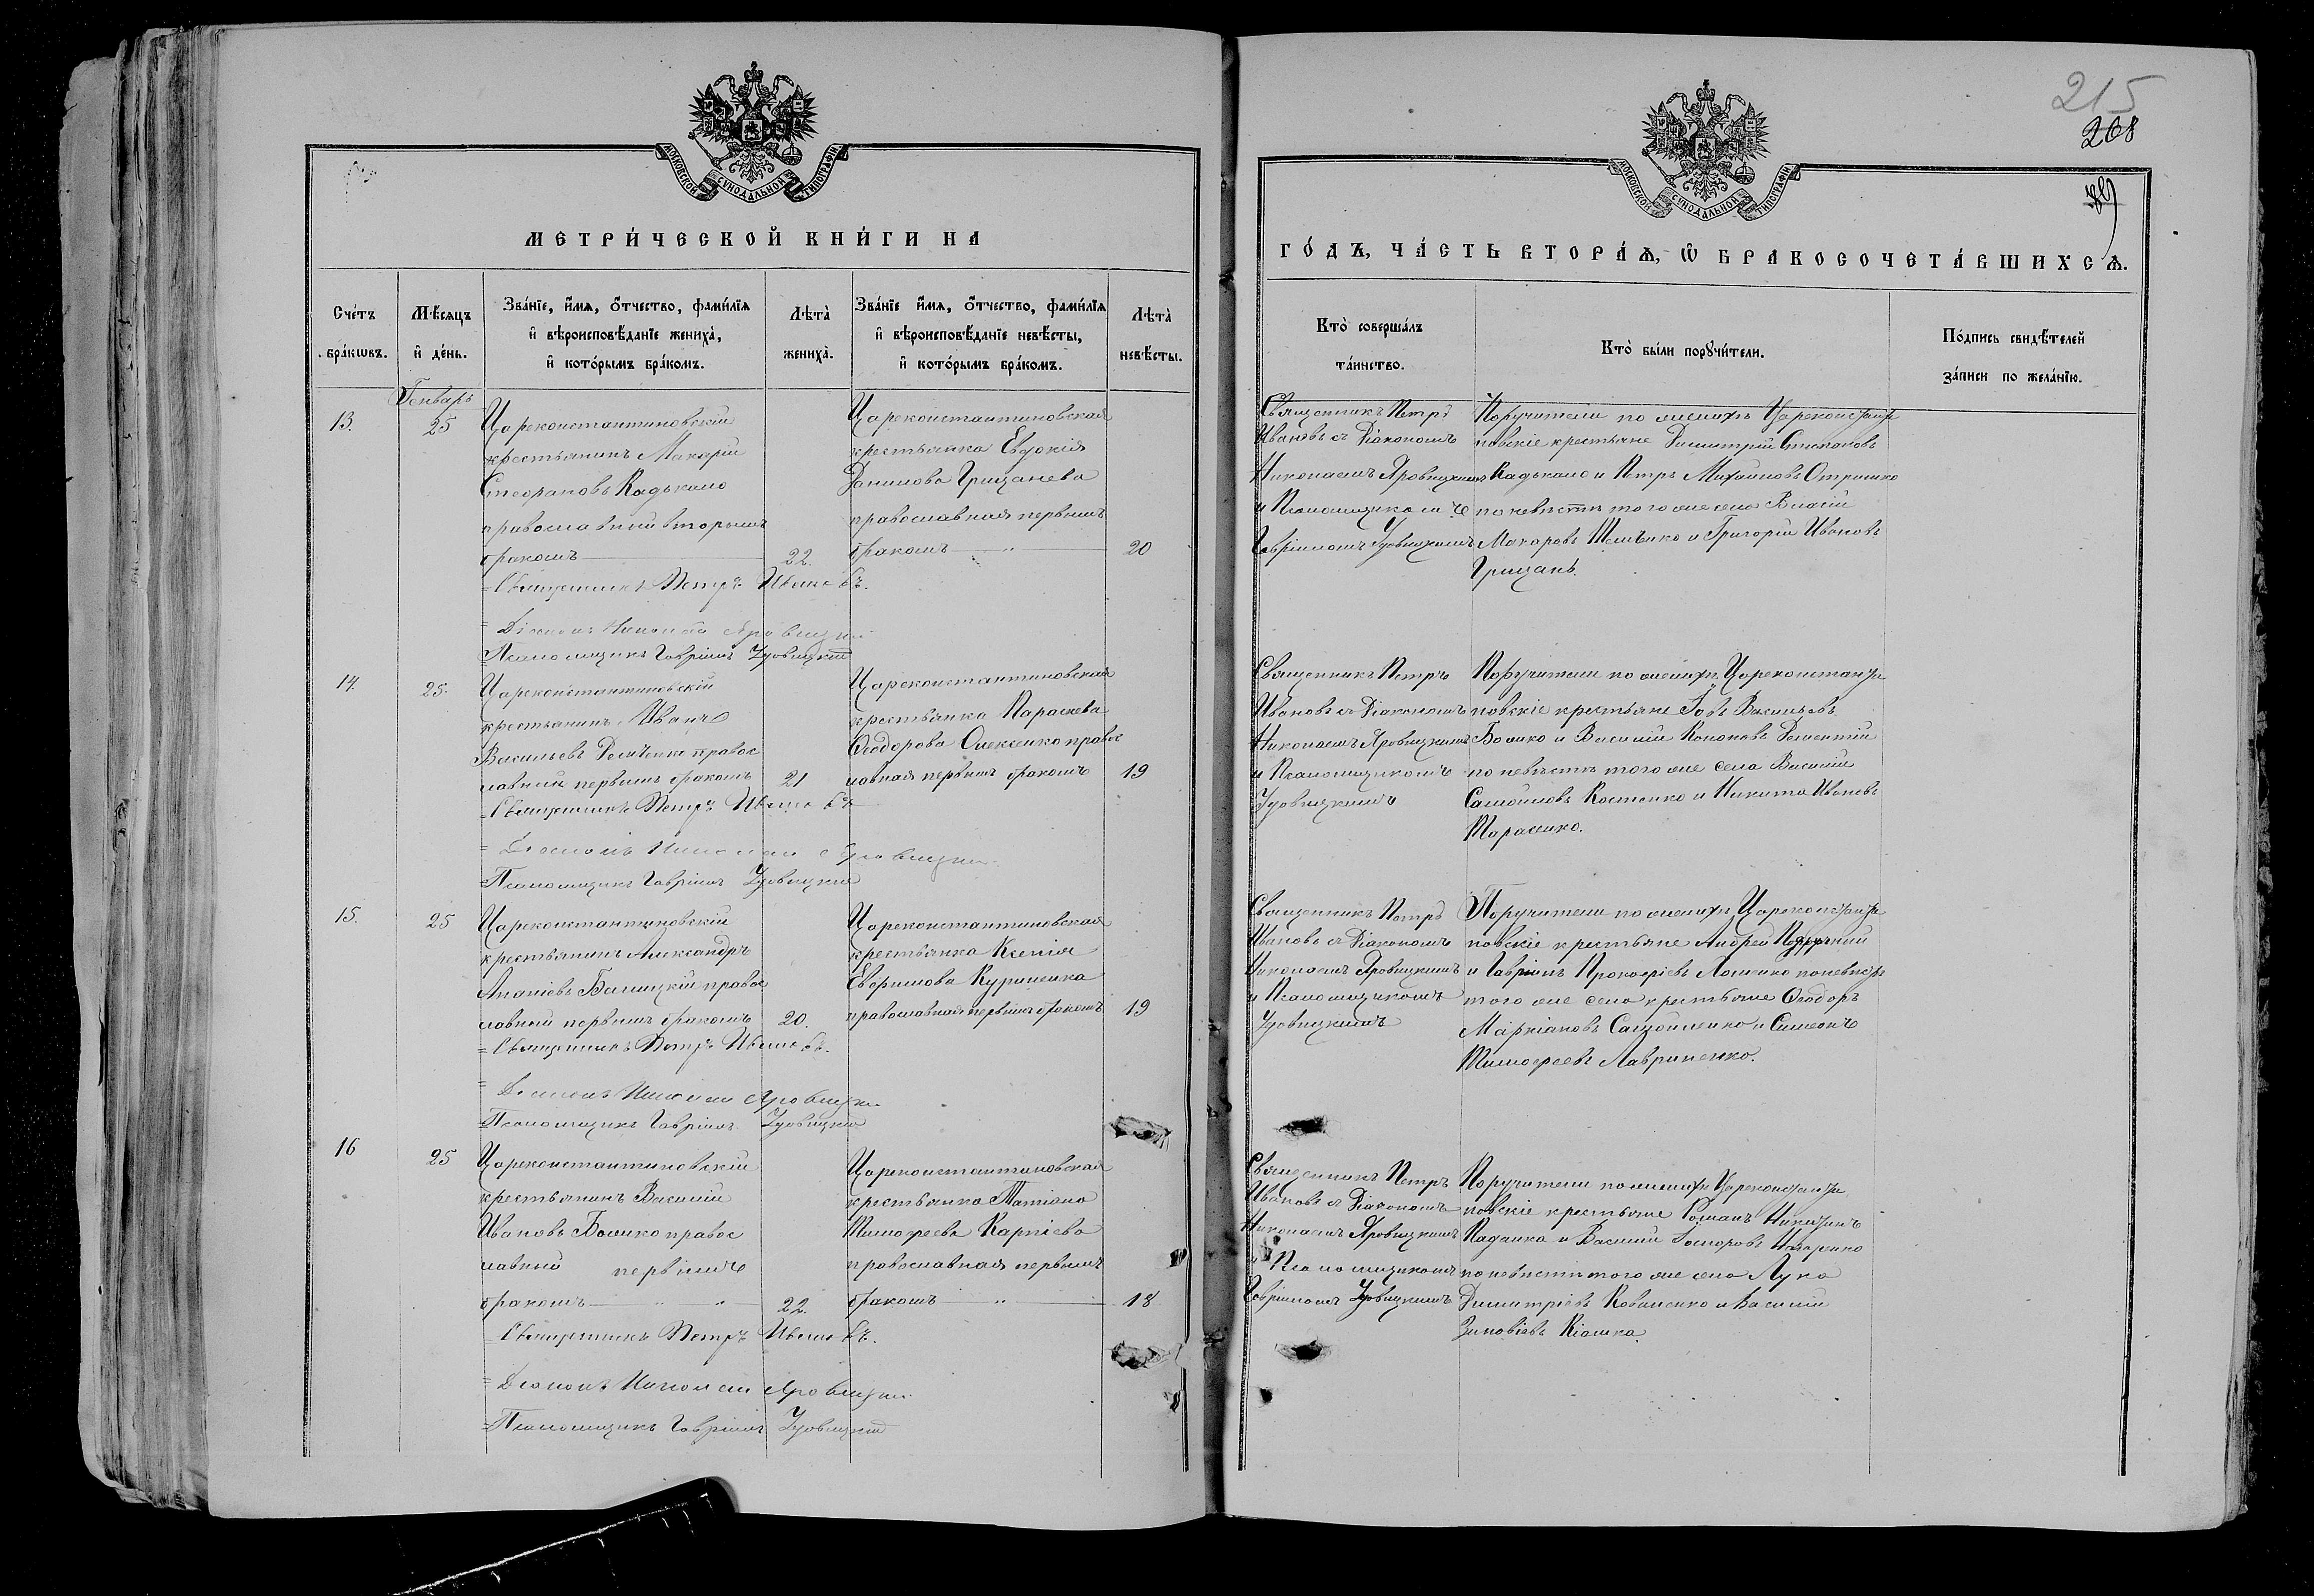 МОСКОВСКОЙ СѴНОДАЛЬНОЙ ТИПОГРАФІИ
МЕТРИ́ЧЕСКОЙ КНИ́ГИ НА
Сче́тъ бра́кωвъ.
Мѣ́сяцъ и҆ де́нь.
Зва́нїе, и҆́мѧ, ѻ҆́тчество, фами́лїѧ
и҆ вѣроисповѣ́данїе жениха̀,
и҆ кото́рымъ бра́комъ.
Лѣта̀ жениха̀.
Зва́нїе и҆́мѧ, ѻ҆́тчество, фами́лїѧ
и҆ вѣроисповѣ́данїе невѣ́сты,
и҆ кото́рымъ бра́комъ.
Лѣта̀ невѣ́сты.
Генварь
13.
25
Цареконстантиновскій
крестьянинъ Макарій
Стефановъ Кадькало
православный вторымъ
бракомъ
22.
Цареконстантиновская
крестьянка Евдокія
Данилова Грицанева
православная первымъ
бракомъ — " —
20
= Священникъ Петръ Ивановъ.
= Діаконъ Николай Яровицкій
= Псаломщикъ Гавріилъ
14.
25.
Цареконстантиновскій
крестьянинъ Иванъ
Васильевъ Демченко правос
лавный первымъ бракомъ
21
Цареконстантиновская
крестьянка Параскева
Ѳеодорова Олексенко правос
лавная первымъ бракомъ
19
= Священникъ Петръ Ивановъ
= Діаконъ Николай Яровицкій
= Псаломщикъ Гавріилъ
15.
25
Цареконстантиновскій
крестьянинъ Александръ
Ананіевъ Балицкій правос
лавный первымъ бракомъ
20.
Цареконстантиновская
крестьянка Ксенія
Евфимова Куриленка
православная первымъ бракомъ
19
= Священникъ Петръ Ивановъ.
= Діаконъ Николай Яровицкій
= Псаломщикъ Гавріилъ
16
25
Цареконстантиновскій
крестьянинъ Василій
Ивановъ Божко правос
лавный первымъ
бракомъ — " — " —
22.
Цареконстантиновская
крестьянка Татіана
Тимофеева Карпіева
православная первымъ
бракомъ — " —
18
= Священникъ Петръ Ивановъ.
= Діаконъ Николай Яровицкій
= Псаломщикъ Гавріилъ
215
208
МОСКОВСКОЙ СѴНОДАЛЬНОЙ ТИПОГРАФІИ
ГО́ДЪ, ЧА́СТЬ ВТОРА́Ѧ, Ѽ БРАКОСОЧЕТА́ВШИХСѦ.
Кто̀ соверша́лъ
та́инство.
Кто̀ бы́ли порꙋчи́тели.
По́дпись свидѣ́телей
за́писи по жела́нїю.
Священникъ Петръ
Ивановъ съ Діакономъ
Николаемъ Яровицкимъ
и Псаломщикомъ
Гавріиломъ
Поручители по женихѣ Цареконстанти
новскіе крестьяне Димитрій Стефановъ
Кадькало и Петръ Михайловъ Отришко
по невѣстѣ того же села Власій
Макаровъ и Григорій Ивановъ
Грицань.
Священникъ Петръ
Ивановъ съ Діакономъ
Николаемъ Яровицкимъ
и Псаломщикомъ
Поручители по женихѣ Цареконстанти
новскіе крестьяне Іовъ Васильевъ
Божко и Василій Кононовъ
по невѣстѣ того же села Василій
Самойловъ Костенко и Никита Ивановъ
Тарасенко.
Священникъ Петръ
Ивановъ съ Діакономъ
Николаемъ Яровицкимъ
и Псаломщикомъ
Поручители по женихѣ Цареконстанти
новскіе крестьяне Андрей
и Гавріилъ Прокофіевъ Лошенко по невѣстѣ
того же села крестьяне Ѳеодоръ
Маркіановъ Самойленко и Симеонъ
Тимофеевъ Лавриненко.
Священникъ Петръ
Ивановъ съ Діакономъ
Николаемъ Яровицкимъ
и Псаломщикомъ
Гавріиломъ
Поручители по женихѣ Цареконстанти
новскіе крестьяне Романъ Никитинъ
и Василій
по невѣстѣ того же села Лука
Димитріевъ Коваленко и Василій
Зиновіевъ Кіашка.